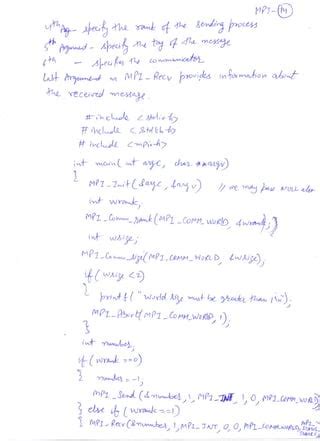 MPI-(M)
4th Arg- specify the rank of the sending process
5th Argument - specify the tag of the message
6th - specifies the communicator.
Last Argument in MPI_Recv provides information about
the received message.
#include <stdio.h>
#include <stdlib.h>
#include <mpi.h>
int main(int argc, char **argv)
{
MPI_Init(&argc, &argv) // we may pass NULL also
int wrank;
MPI_Comm_rank(MPI_COMM_WORLD, &wrank);
int wsize;
MPI_Comm_size(MPI_COMM_WORLD, &wsize);
if (wsize <2)
{
printf("World size must be greater than 1\n");
MPI_Abort(MPI_COMM_WORLD, 1);
}
int number;
if (wrank ==0)
{ number = -1;
MPI_Send(&number, 1, MPI_INT, 1, 0, MPI_COMM_WORLD)
} else if (wrank ==1)
{ MPI_Recv(&number, 1, MPI_INT, 0, 0, MPI_COMM_WORLD,